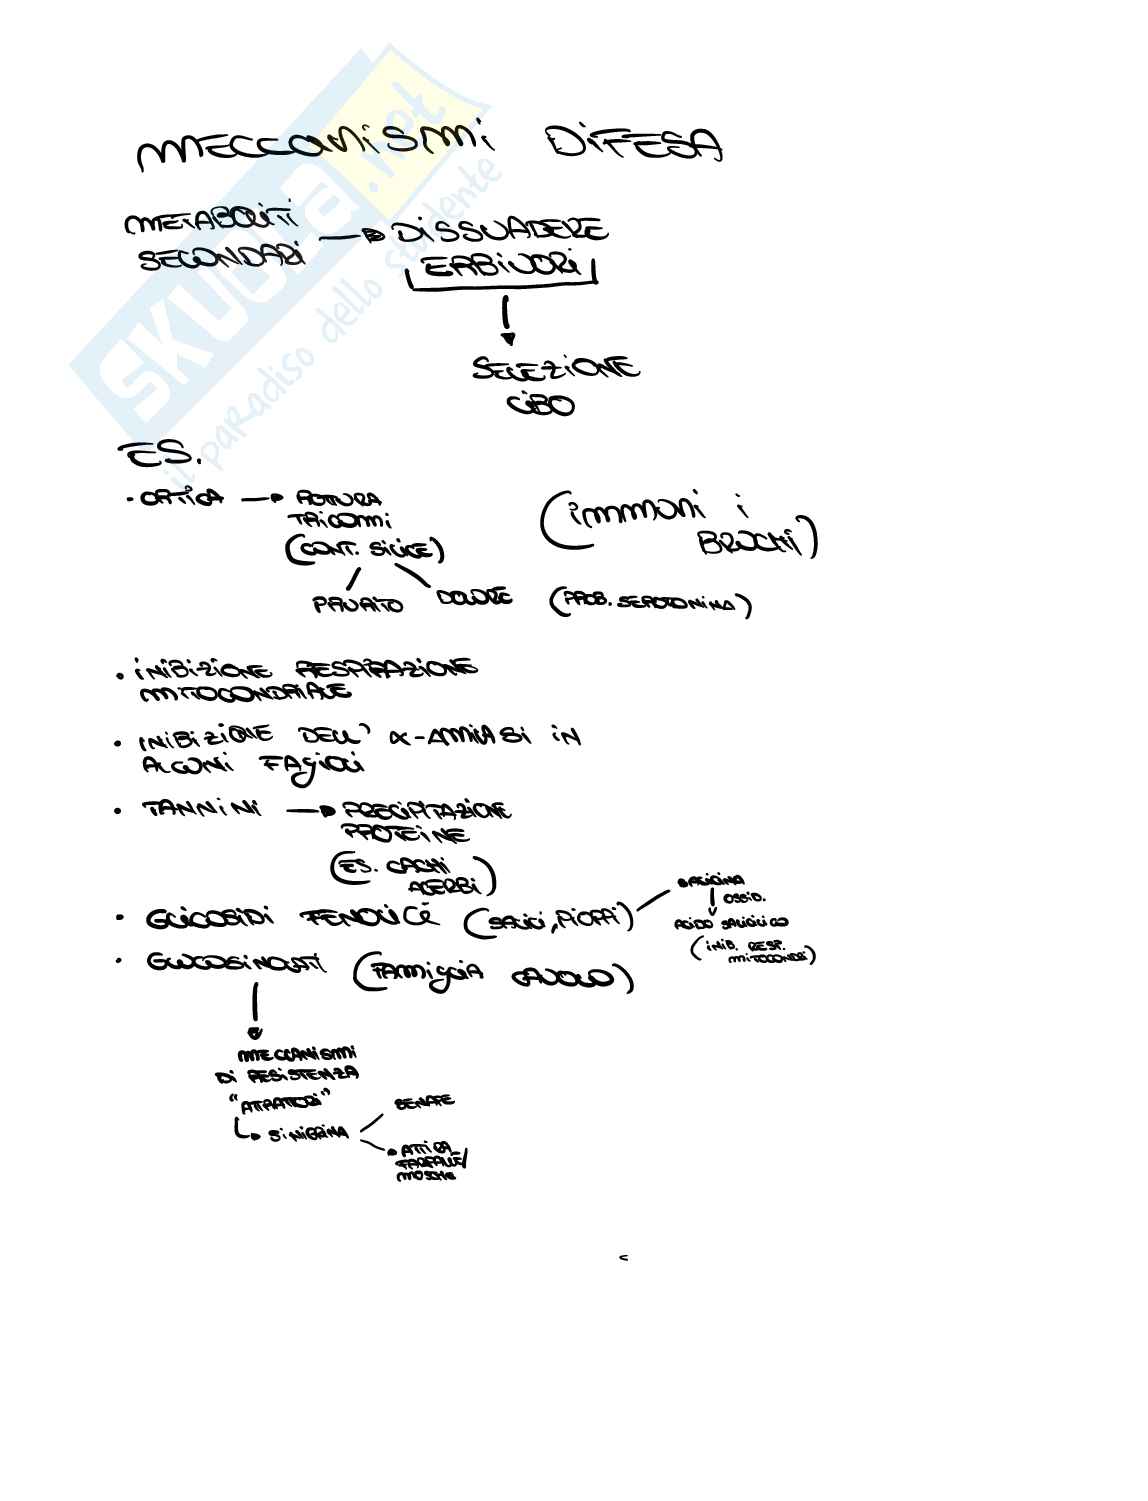 MECCANISMI DIFESA
METABOLITI
SECONDARI → DISSUADERE
ERBIVORI
SELEZIONE
CIBO
ES.
• ORTICA → ROTTURA
TRICOMI
(CONT. SILICE)
(IMMUNI I
BRUCHI)
PRURITO DOLORE (PROB. SEROTONINA)
• INIBIZIONE RESPIRAZIONE
MITOCONDRIALE
• INIBIZIONE DELL' α-AMILASI IN
ALCUNI FAGIOLI
• TANNINI → PRECIPITAZIONE
PROTEINE
(ES. CACHI
ACERBI)
• GLICOSIDI FENOLICI (SALICI, PIOPPI)
SALICINA
OSSID.
ACIDO SALICILICO
(INIB. RESP.
MITOCONDRI)
• GLUCOSINOLATI (FAMIGLIA CAVOLO)
MECCANISMI
DI RESISTENZA
"ATTRATTORI"
→ SINIGRINA
SENAPE
ATTIRA
FARFALLE/
MOSCHE
SKUOLA.net
il paradiso dello studente